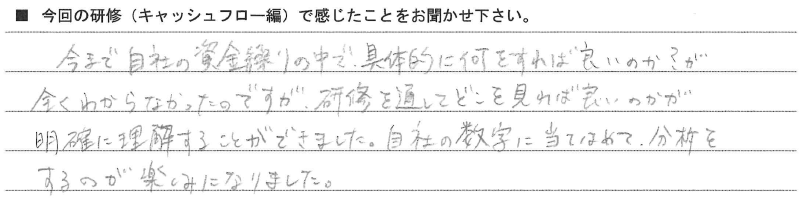 ■ 今回の研修（キャッシュフロー編）で感じたことをお聞かせ下さい。
今まで自社の資金繰りの中で、具体的に何をすれば良いのか？が
全くわからなかったのですが、研修を通してどこを見れば良いのかが
明確に理解することができました。自社の数字に当てはめて、分析を
するのが楽しみになりました。